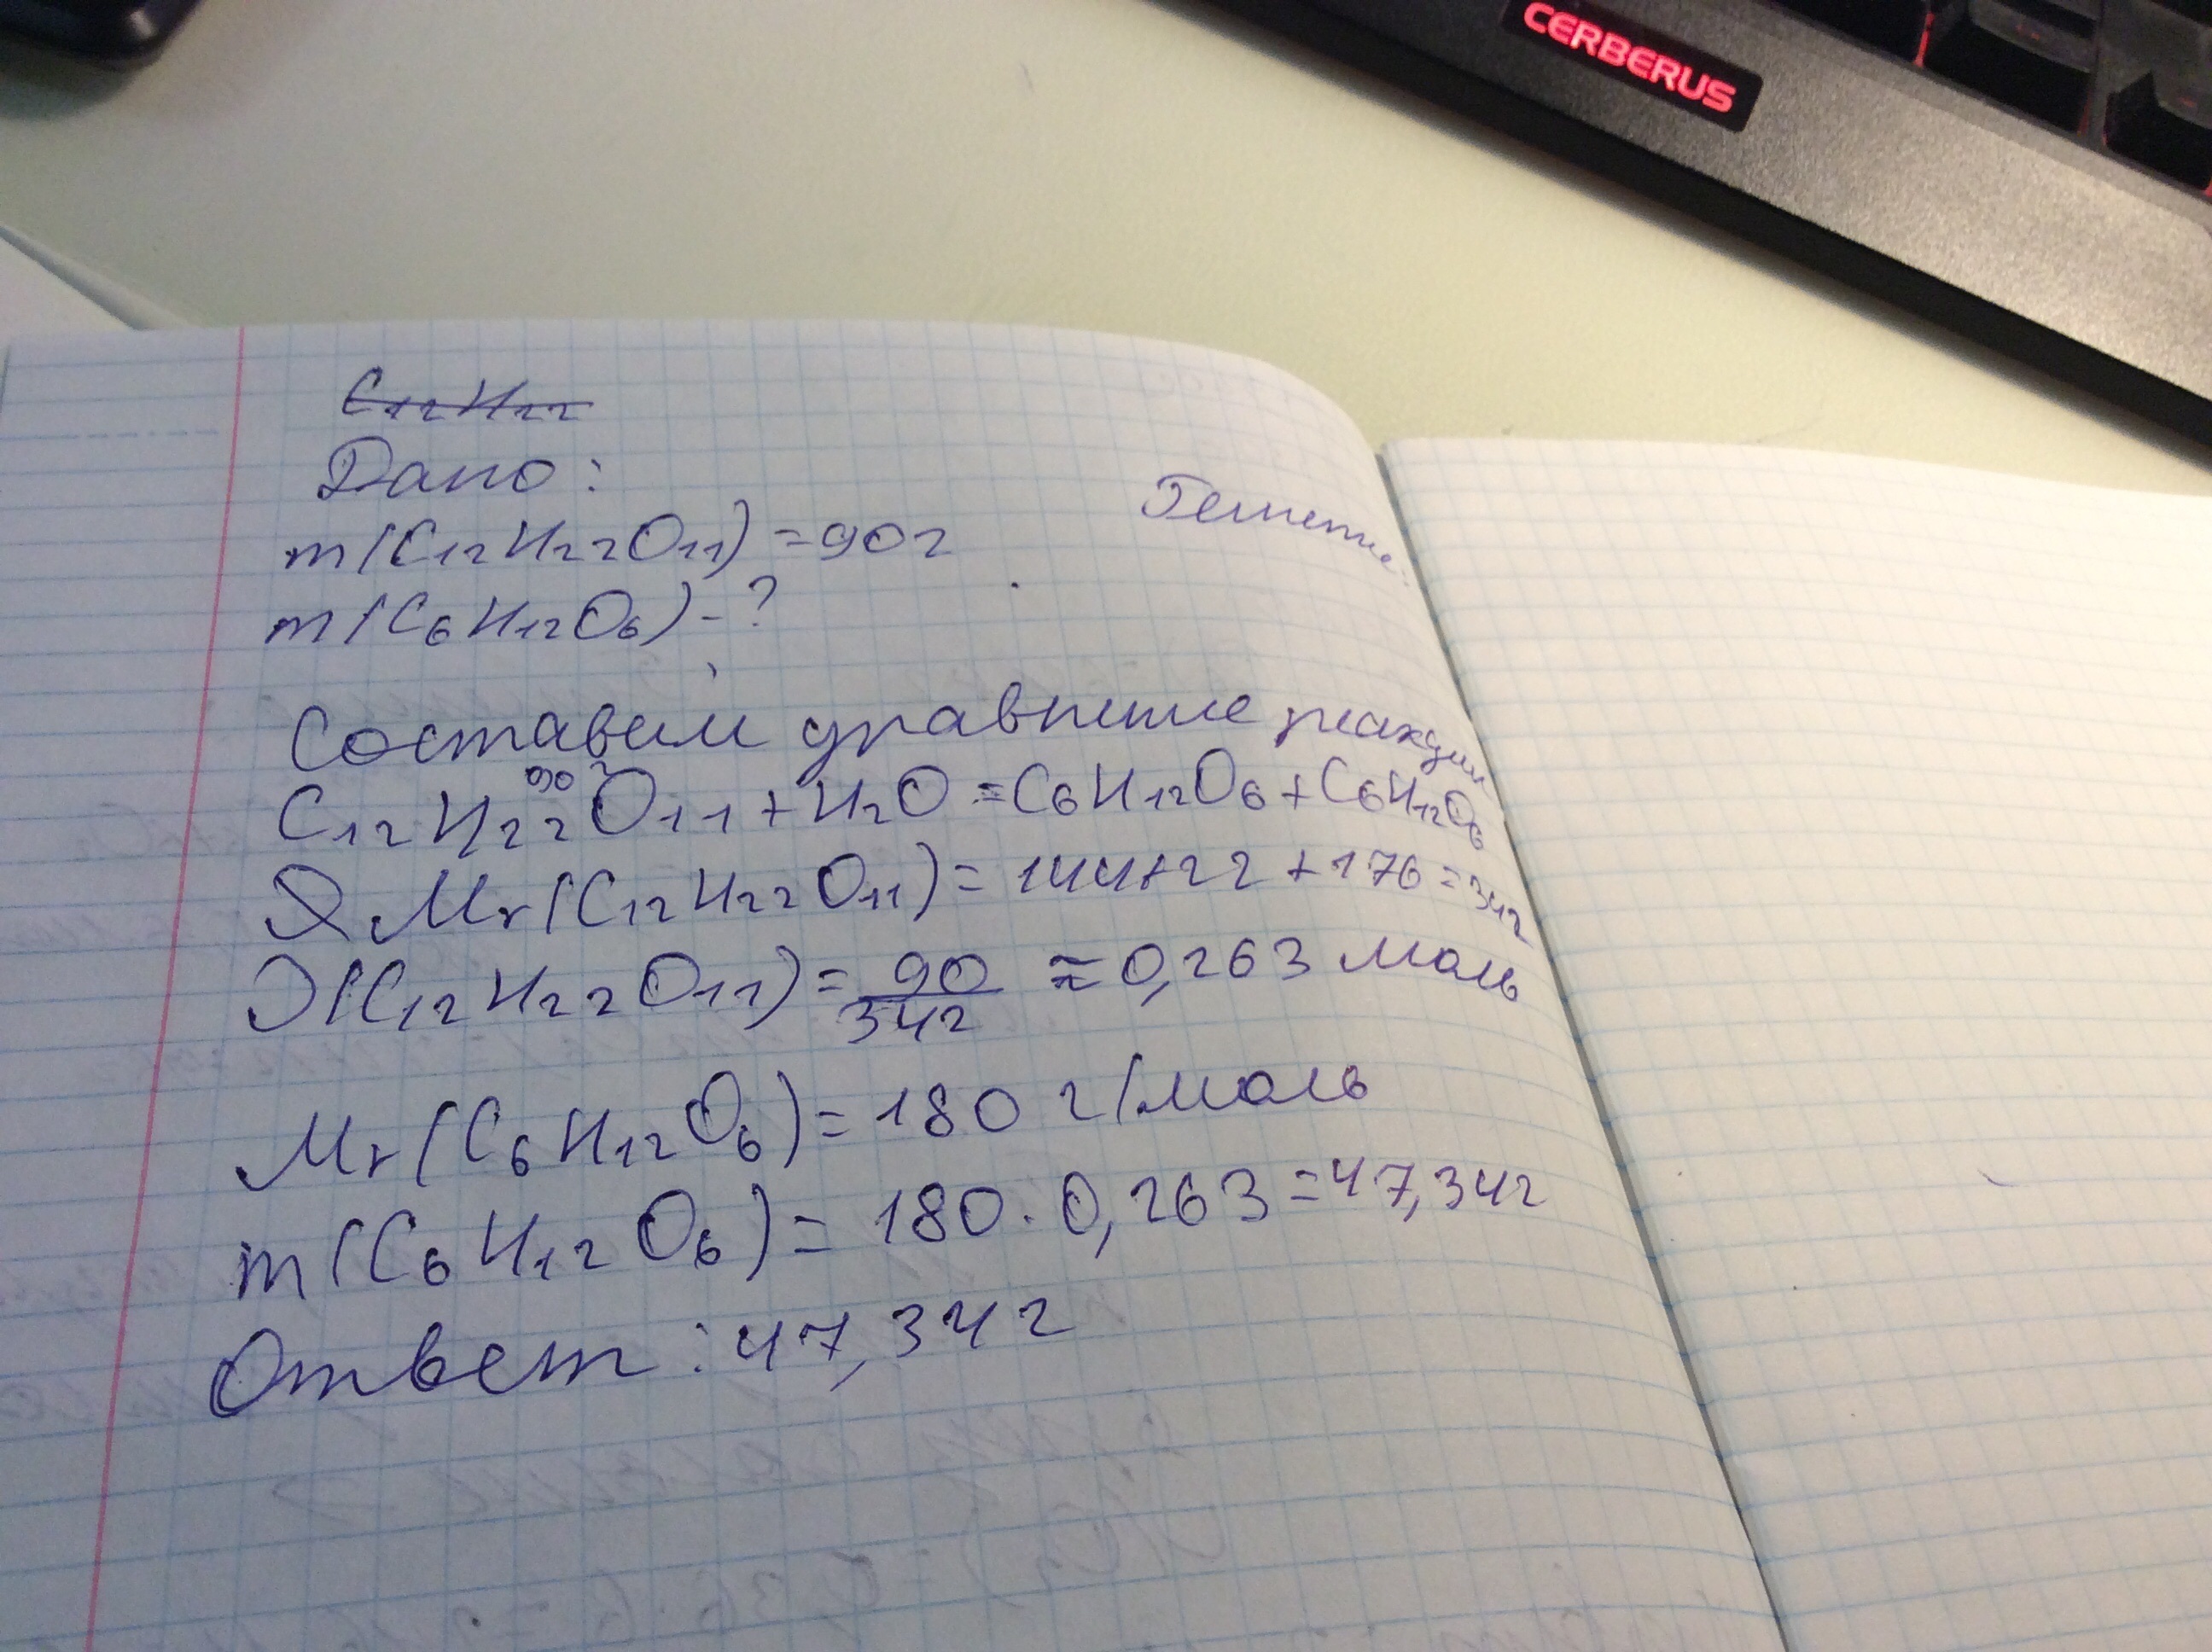 CERBERUS
C₁₂H₂₂
Дано:
m(C₁₂H₂₂O₁₁)=90г
Решение:
m(C₆H₁₂O₆)-?
Составим уравнение реакции
90 г
C₁₂H₂₂O₁₁+H₂O=C₆H₁₂O₆+C₆H₁₂O₆
Mr(C₁₂H₂₂O₁₁)=144+22+176=342
(C₁₂H₂₂O₁₁)=90/342≈0,263 моль
Mr(C₆H₁₂O₆)=180 г/моль
m(C₆H₁₂O₆)=180·0,263=47,34г
Ответ:47,34г